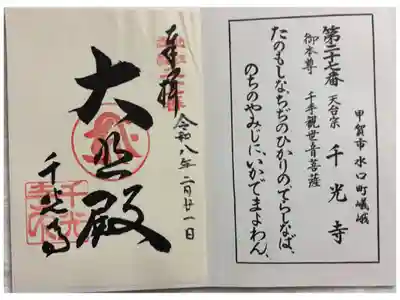 甲賀市 水口町嶬峨
第二十七番 天台宗 千光寺
御本尊 千手観世音菩薩
たのもしな、ちぢのひかりのてらしなば、
のちのやみじに、いかでまよわん、
令和八年二月廿一日
奉拝
大悲殿
千光寺